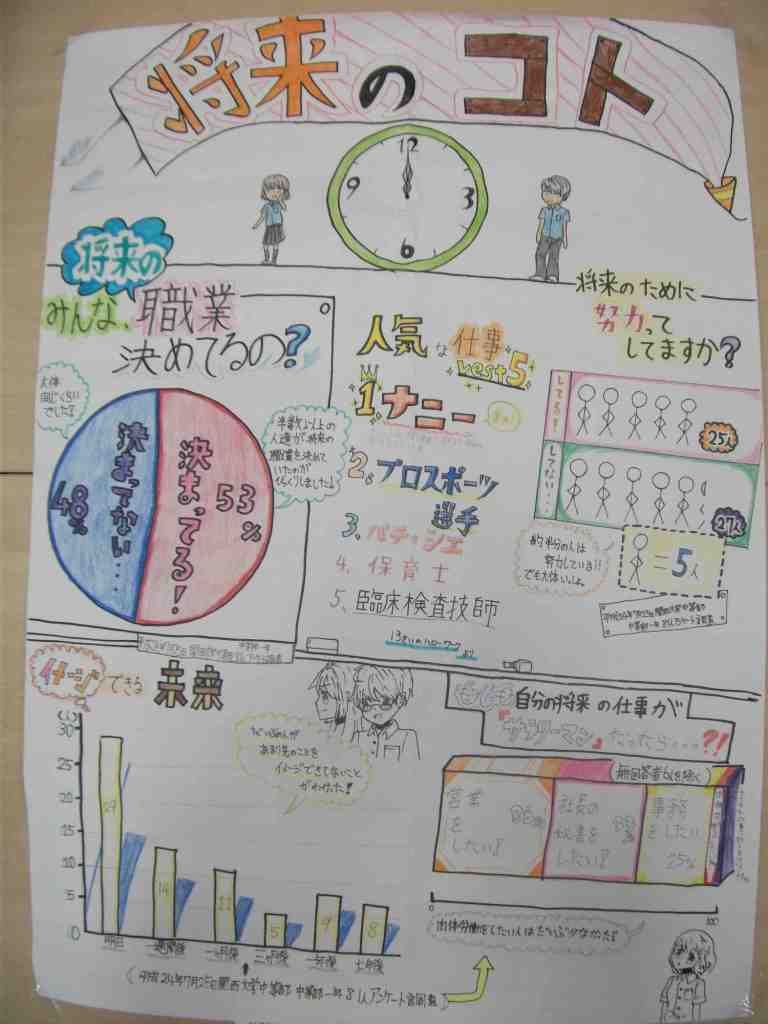 将来のコト
12
3
6
9
将来の
みんな、職業
決めてるの?
大体
同じくらい
でした!
決まってない・・・
48%
決まってる!
53%
半数以上の
人達が将来の
職業を決めて
いたのが
びっくりしました!
人気な仕事
best5
1 ナニー
2. プロスポーツ
選手
3. パティシエ
4. 保育士
5. 臨床検査技師
13才のハローワーク
より
将来のために
努力って
してますか?
してる!
25人
してない・・・
27人
約半分の人は
努力している!!
でも大体いっしょ。
= 5人
イメージできる 未来
(人)
30
25
20
15
10
5
0
29
14
11
5
9
8
明日
一週間後
一ヶ月後
二ヶ月後
一年後
七年後
だいぶんが
あまり先のことを
イメージできてないこと
がわかった!
(平成24年7月25日関西大学中等部
自分の将来の仕事が
『サラリーマン』だったら・・・?!
(無回答者6人を除く)
営業
をしたい!
社長の
秘書を
したい!
事務
をしたい
25%
0
100
肉体労働をしたい人はだいぶ少なかった!